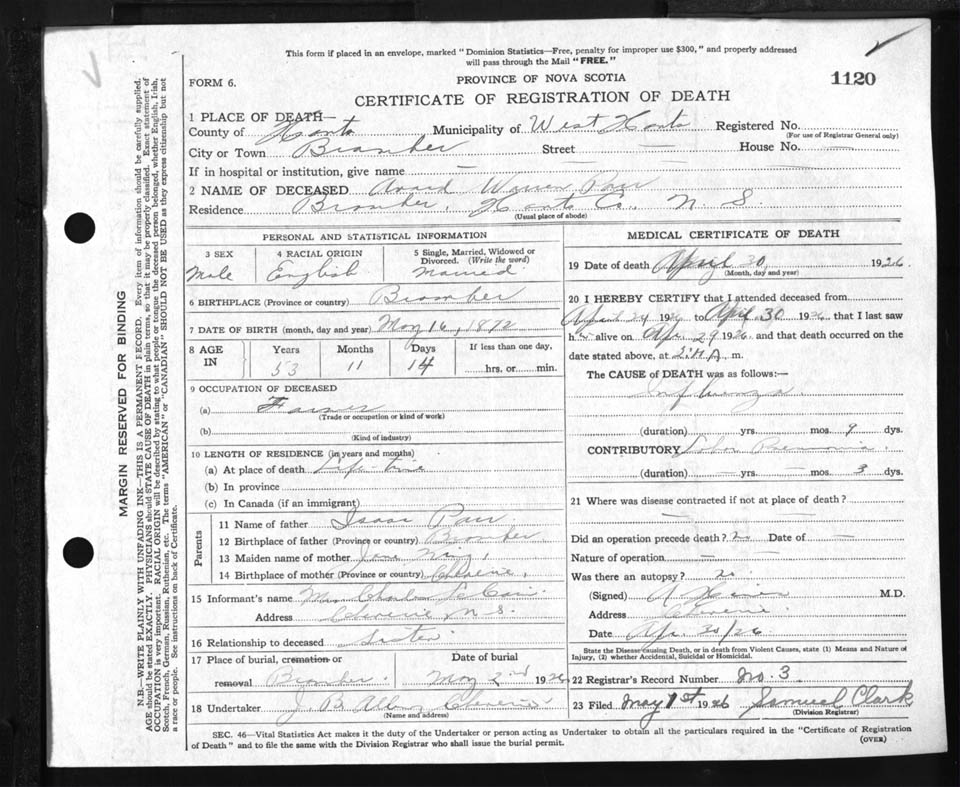 This form if placed in an envelope, marked "Dominion Statistics—Free, penalty for improper use $300," and properly addressed
will pass through the Mail "FREE."
FORM 6.
PROVINCE OF NOVA SCOTIA
1120
CERTIFICATE OF REGISTRATION OF DEATH
1 PLACE OF DEATH—
County of Hants Municipality of West Hants Registered No.
(For use of Registrar General only)
City or Town Bramber Street — House No. —
If in hospital or institution, give name —
2 NAME OF DECEASED Avard Warren Parr
Residence Bramber, Hants Co., N. S.
(Usual place of abode)
PERSONAL AND STATISTICAL INFORMATION
3 SEX 4 RACIAL ORIGIN 5 Single, Married, Widowed or
Divorced. (Write the word)
Male English Married
6 BIRTHPLACE (Province or country) Bramber
7 DATE OF BIRTH (month, day and year) May 16, 1872
8 AGE IN Years Months Days If less than one day,
53 11 14 hrs. or min.
9 OCCUPATION OF DECEASED
(a) Farmer
(Trade or occupation or kind of work)
(b)
(Kind of industry)
10 LENGTH OF RESIDENCE (in years and months)
(a) At place of death Life-time
(b) In province
(c) In Canada (if an immigrant)
Parents
11 Name of father Isaac Parr
12 Birthplace of father (Province or country) Bramber
13 Maiden name of mother Jane
14 Birthplace of mother (Province or country) Cheverie,
15 Informant's name Mrs Charles
Address Cheverie N.S.
16 Relationship to deceased Sister
17 Place of burial, cremation or Date of burial
removal Bramber. May 2nd 1926
18 Undertaker J. B. Cheverie
(Name and address)
MEDICAL CERTIFICATE OF DEATH
19 Date of death April 30 1926
(Month, day and year)
20 I HEREBY CERTIFY that I attended deceased from
April 24 1926 to April 30 1926 that I last saw
h alive on Apr. 29 1926 and that death occurred on the
date stated above, at A. m.
The CAUSE of DEATH was as follows:—
Influenza
(duration) yrs. mos. 9 dys.
CONTRIBUTORY Lobar Pneumonia
(duration) — yrs. — mos. 3 dys.
21 Where was disease contracted if not at place of death?
—
Did an operation precede death? no Date of —
Nature of operation —
Was there an autopsy? no
(Signed) M.D.
Address Cheverie
Date Apr 30/26
State the Disease causing Death, or in death from Violent Causes, state (1) Means and Nature of
Injury, (2) whether Accidental, Suicidal or Homicidal.
22 Registrar's Record Number No. 3
23 Filed May 1st 1926 Samuel Clark
(Division Registrar)
SEC. 46—Vital Statistics Act makes it the duty of the Undertaker or person acting as Undertaker to obtain all the particulars required in the "Certificate of Registration
of Death" and to file the same with the Division Registrar who shall issue the burial permit.
(OVER)
MARGIN RESERVED FOR BINDING
N.B.—WRITE PLAINLY WITH UNFADING INK—THIS IS A PERMANENT RECORD. Every item of information should be carefully supplied.
AGE should be stated EXACTLY. PHYSICIANS should STATE CAUSE OF DEATH in plain terms, so that it may be properly classified. Exact statement of
OCCUPATION is very important. RACIAL ORIGIN will be described by stating to what people or tongue the deceased person belonged, whether English, Irish,
Scotch, French, German, Russian, Ruthenian, etc. The terms "AMERICAN" or "CANADIAN" SHOULD NOT BE USED as they express citizenship but not
a race or people. See instructions on back of Certificate.